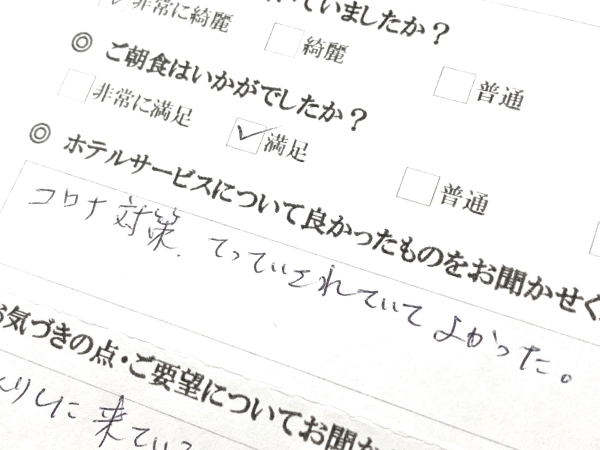 非常に綺麗
綺麗
普通
いていましたか？
◎ ご朝食はいかがでしたか？
非常に満足
満足
普通
◎ ホテルサービスについて良かったものをお聞かせく
コロナ対策、てっていされていてよかった。
お気づきの点・ご要望についてお聞か
りしに来てい